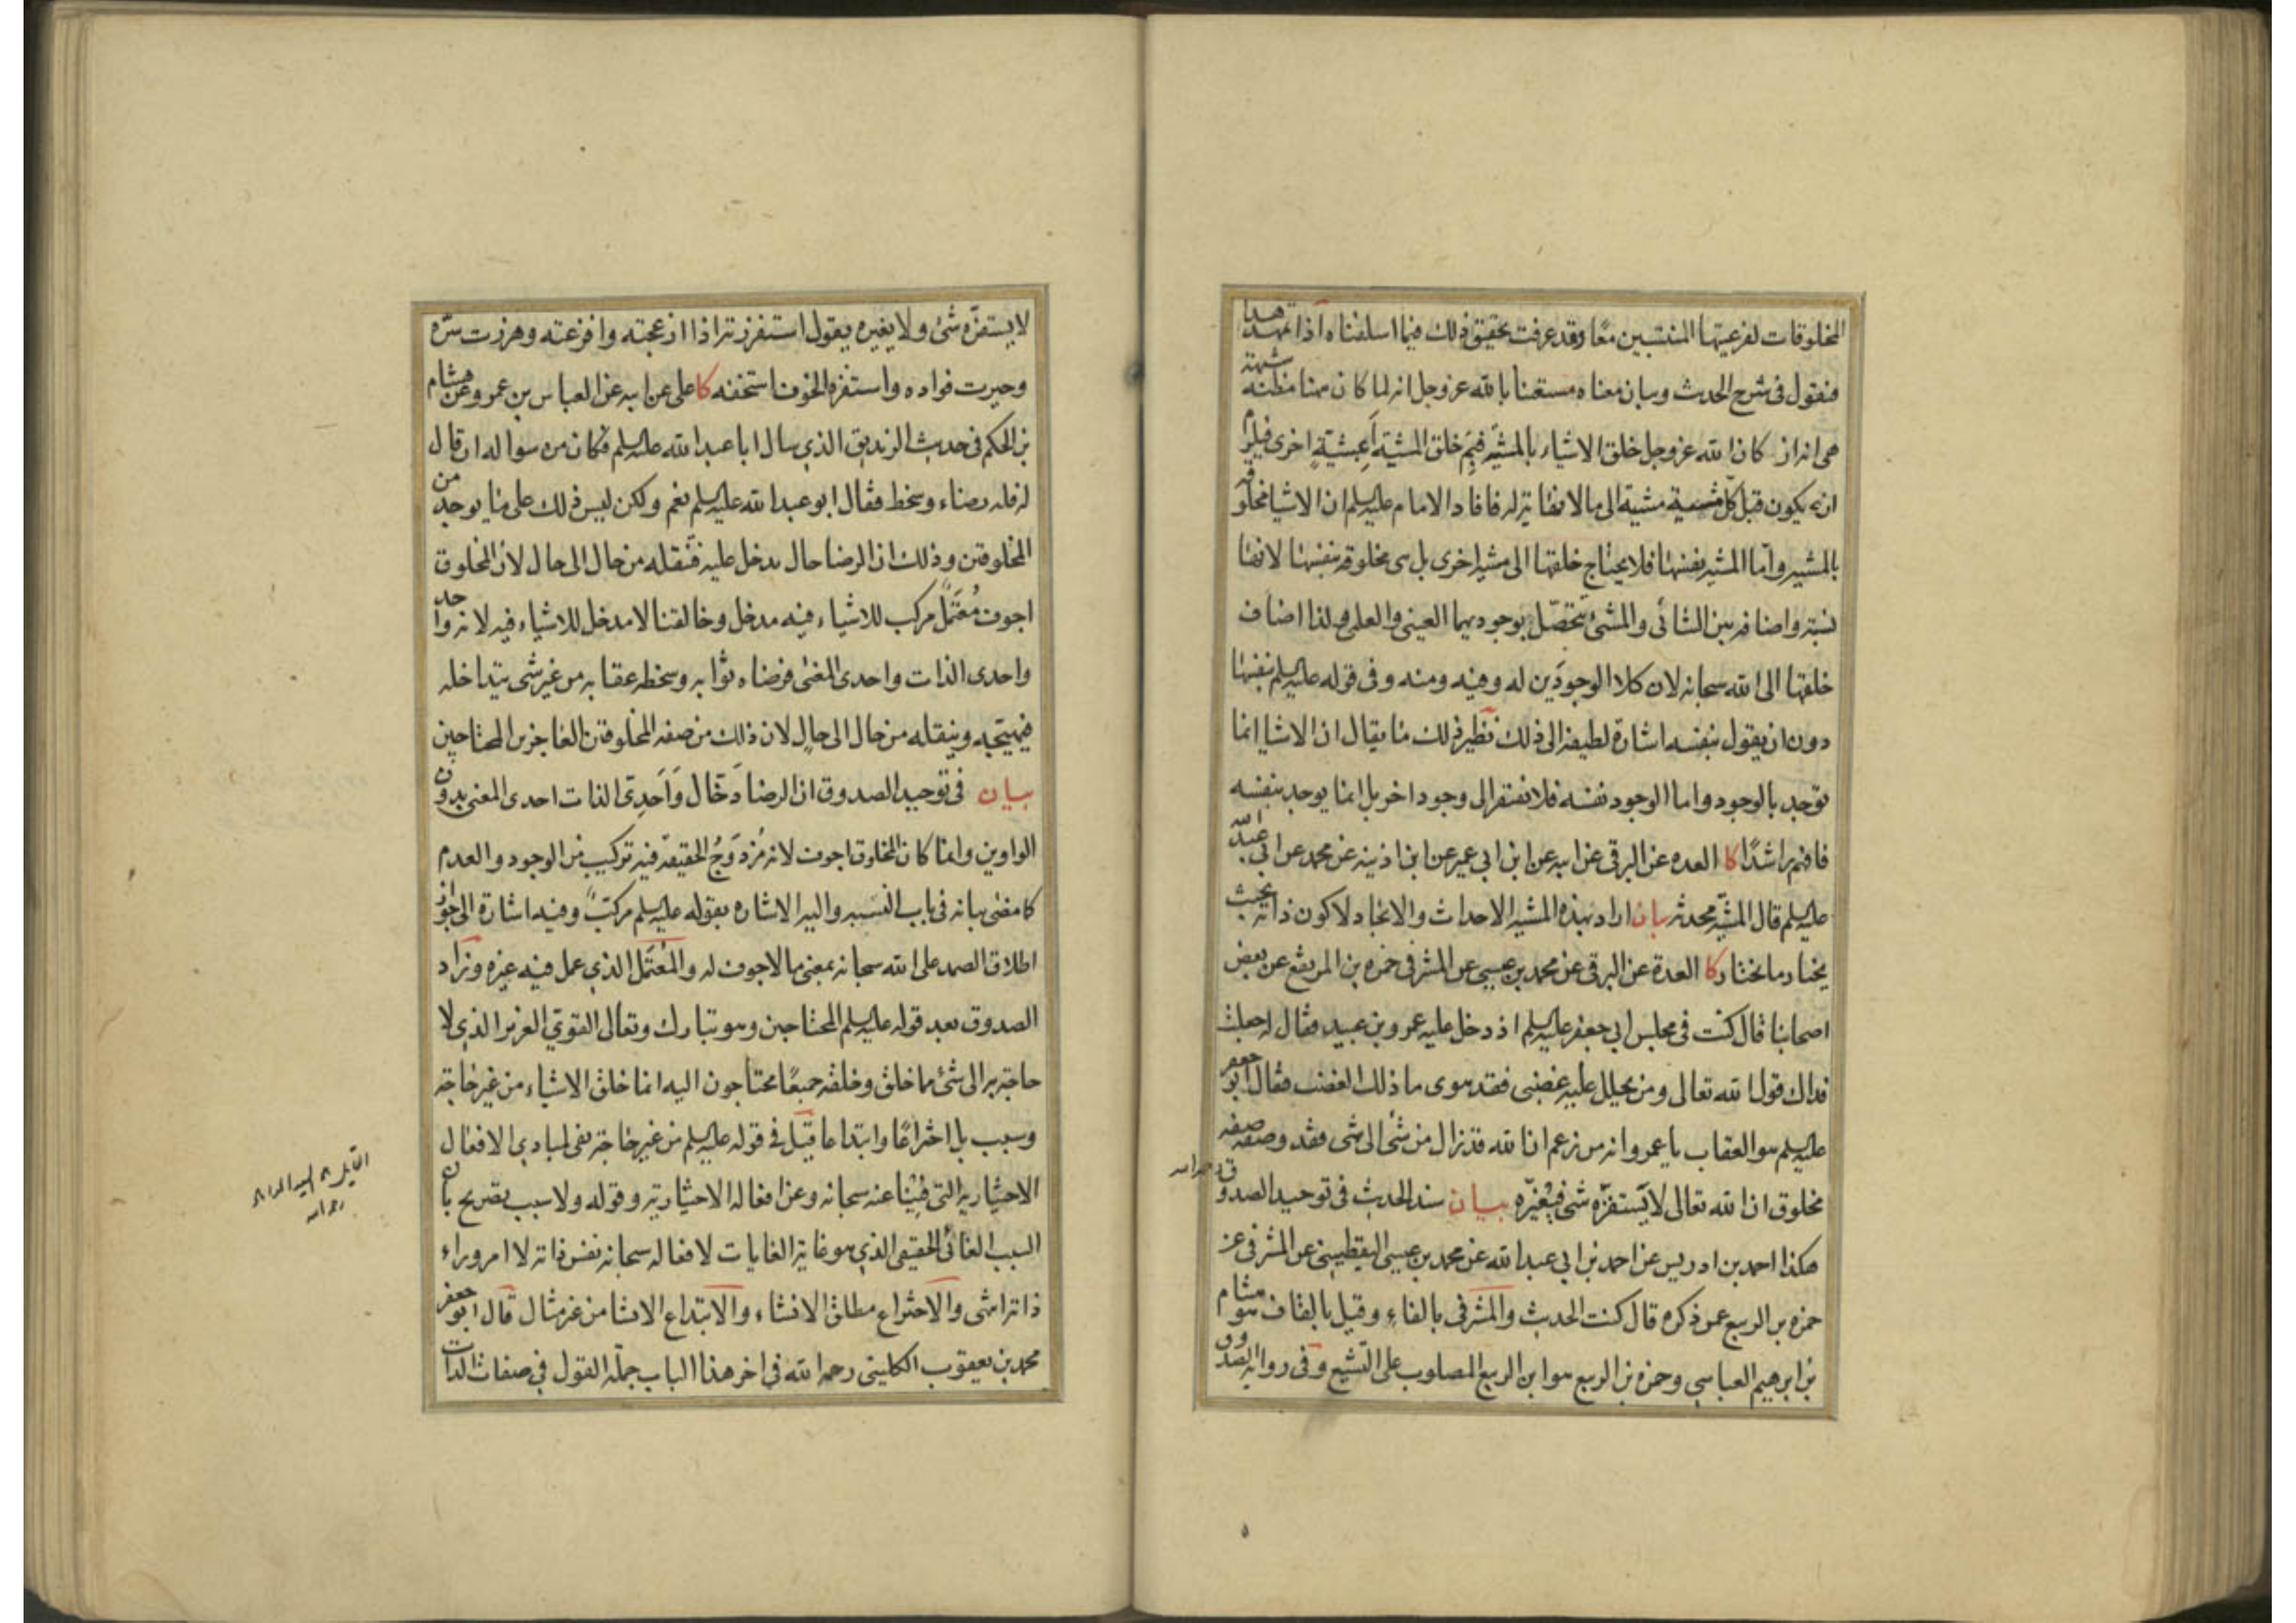 المخلوقات لفرعيتها المنتسبين معا وقد عرفت تحقيق ذلك فيما اسلفناه اذا تمهد هذا
فنقول فى شرح الحديث وبيان معناه مستعينا بالله عز وجل انه لما كان هنا مظنة شبهة
هى انه ان كان الله عز وجل خلق الاشياء بالمشية فبم خلق المشية أبمشيةٍ اخرى فيلزم
ان يكون قبل كل مشية مشية الى ما لا نهاية له فافاد الامام عليه السلم ان الاشيا مخلوقه
بالمشيه واما المشيه نفسها فلا يحتاج خلقها الى مشية اخرى بل هى مخلوقه بنفسها لانها
نسبة واضافه بين الشائى والمشئ تتحصّل بوجوديهما العينى والعلمى ولذا اضاف
خلقها الى الله سبحانه لان كلا الوجودَين له وفيه ومنه وفى قوله عليه السلم بنفسها
دون ان يقول بنفسه اشارة لطيفه الى ذلك نظير ذلك ما يقال ان الاشيا انما
توجد بالوجود واما الوجود نفسه فلا يفتقر الى وجود اخر بل انما يوجد بنفسه
فافهم راشدًا كا العده عن البرقى عن ابيه عن ابن ابي عمير عن ابن اذينه عن محمد عن ابي عبد الله
عليه السلم قال المشيّه محدثه بيان اراد بهذه المشيه الاحداث والايجاد لا كون ذاته بحيث
يختار ما يختار كا العدة عن البرقى عن محمد بن عيسى عن المشرفى حمزه بن المرتفع عن بعض
اصحابنا قال كنت فى مجلس ابي جعفر عليه السلم اذ دخل عليه عمرو بن عبيد فقال له جعلت
فداك قول الله تعالى ومن يحلل عليه غضبى فقد هوى ما ذلك الغضب فقال ابو جعفر
عليه السلم هو العقاب يا عمرو انه من زعم ان الله قد زال من شئ الى شى فقد وصفه صفه
مخلوق ان الله تعالى لا يَستفزّه شى فيُغيّره بيان سند الحديث فى توحيد الصدوق
هكذا احمد بن ادريس عن احمد بن ابي عبد الله عن محمد بن عيسى اليقطينى عن المشرفى عن
حمزه بن الربيع عمن ذكره قال كنت الحديث والمشرفى بالفاء وقيل بالقاف هو هشام
بن ابرهيم العباسي وحمزه بن الربيع هو ابن الربيع المصلوب على التشيع وفى رواية الصدوق
لا يستفزّه شئ ولا يغيره يقول استفززته اذا ازعجته وافزعته وهززت سرّه
وحيرت فواده واستفزه الخوف استخفه كا على عن ابيه عن العباس بن عمرو عن هشام
بن الحكم فى حديث الزنديق الذي سال ابا عبد الله عليه السلم فكان من سواله ان قال
له فله رضاء وسخط فقال ابو عبد الله عليه السلم نعم ولكن ليس ذلك على ما يوجد من
المخلوقين وذلك ان الرضا حال تدخل عليه فتنقله من حال الى حال لان المخلوق
اجوف مُعْتَمَلٌ مركب للاشياء فيه مدخل وخالقنا لا مدخل للاشياء فيه لانه واحد
واحدى الذات واحدى المعنى فرضاه ثوابه وسخطه عقابه من غير شى يتداخله
فيهيّجه وينقله من حال الى حالٍ لان ذلك من صفه المخلوقين العاجزين المحتاجين
بيان فى توحيد الصدوق ان الرضا دَخّال وَاَحَدِىّ الذات احدى المعنى بدون
الواوين وانما كان المخلوق اجوف لانه مُزدَوَجُ الحقيقه فيه تركيب من الوجود والعدم
كما مضى بيانه فى باب النسبه واليه الاشاره بقوله عليه السلم مركبٌ وفيه اشارة الى جواز
اطلاق الصمد على الله سبحانه بمعنى ما لا جوف له والمُعْتَمَل الذي عمل فيه غيره وزاد
الصدوق بعد قوله عليه السلم المحتاجين وهو تبارك وتعالى القوي العزيز الذي لا
حاجة به الى شئ مما خلق وخلقه جميعًا محتاجون اليه انما خلق الاشياء من غير حاجة
وسبب بل اختراعًا وابتداعا قيل فى قوله عليه السلم من غير حاجة نفى لمبادى الافعال
الاختياريه التى فينا عنه سبحانه وعن افعاله الاختيارية وقوله ولا سبب تصريح بان
السبب الغائى الحقيقى الذي هو غاية الغايات لافعاله سبحانه نفس ذاته لا امر وراء
ذاته انتهى والاختراع مطلق الانشاء والابتداع الانشا من غير مثال قال ابو جعفر
محمد بن يعقوب الكلينى رحمه الله فى اخر هذا الباب جملة القول فى صفات الذات
رحمه الله